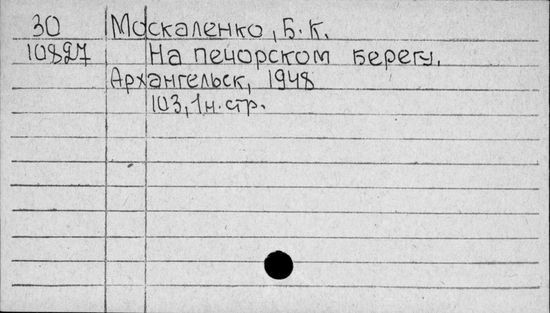 30 Москаленко, Б. К.
10827 На печорском берегу.
Архангельск, 1948
103, 1 н. стр.